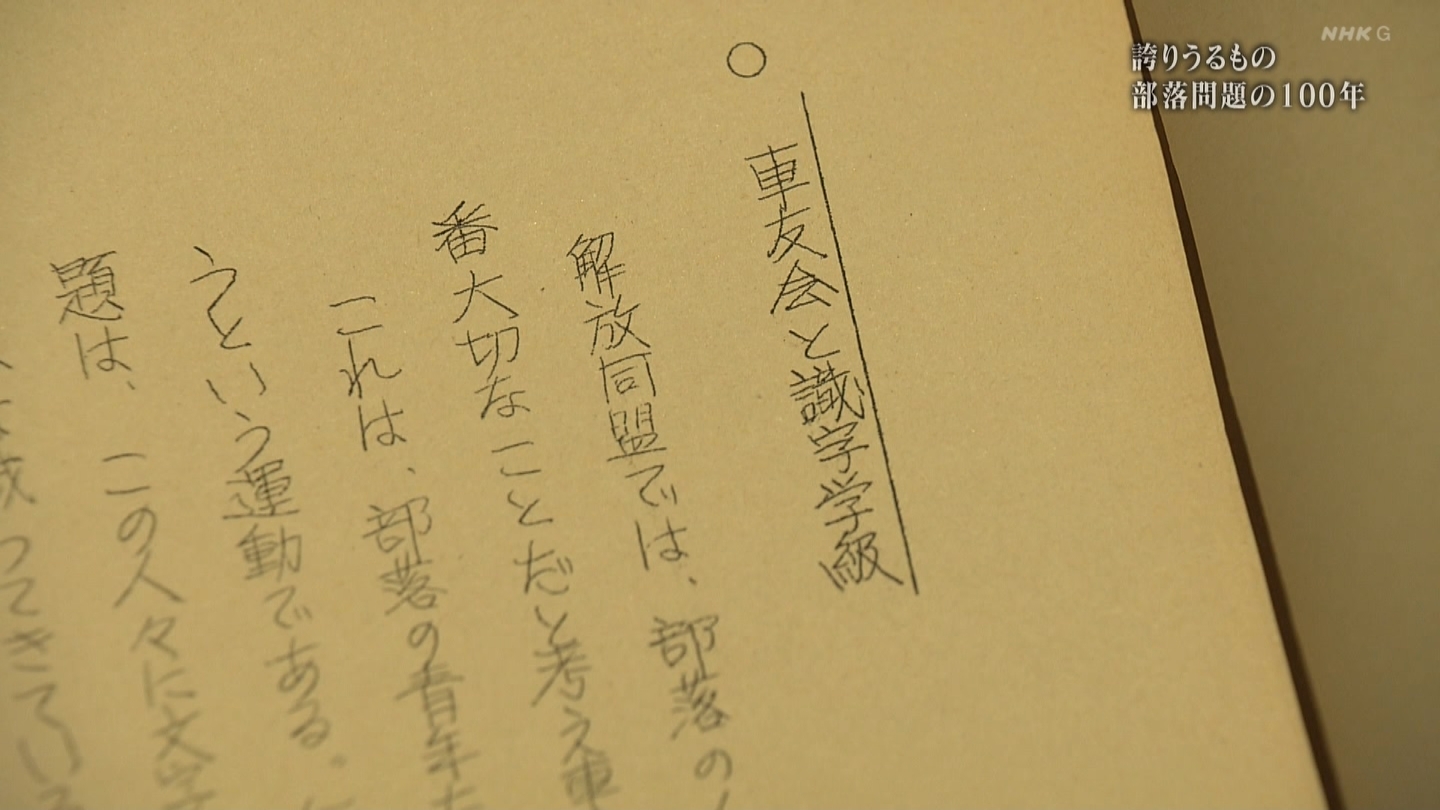 NHK G
誇りうるもの
部落問題の100年
○
車友会と識字学級
解放同盟では、部落の
番大切なことだと考え車
これは、部落の青年
うという運動である。
題は、この人々に文字
成ってきている